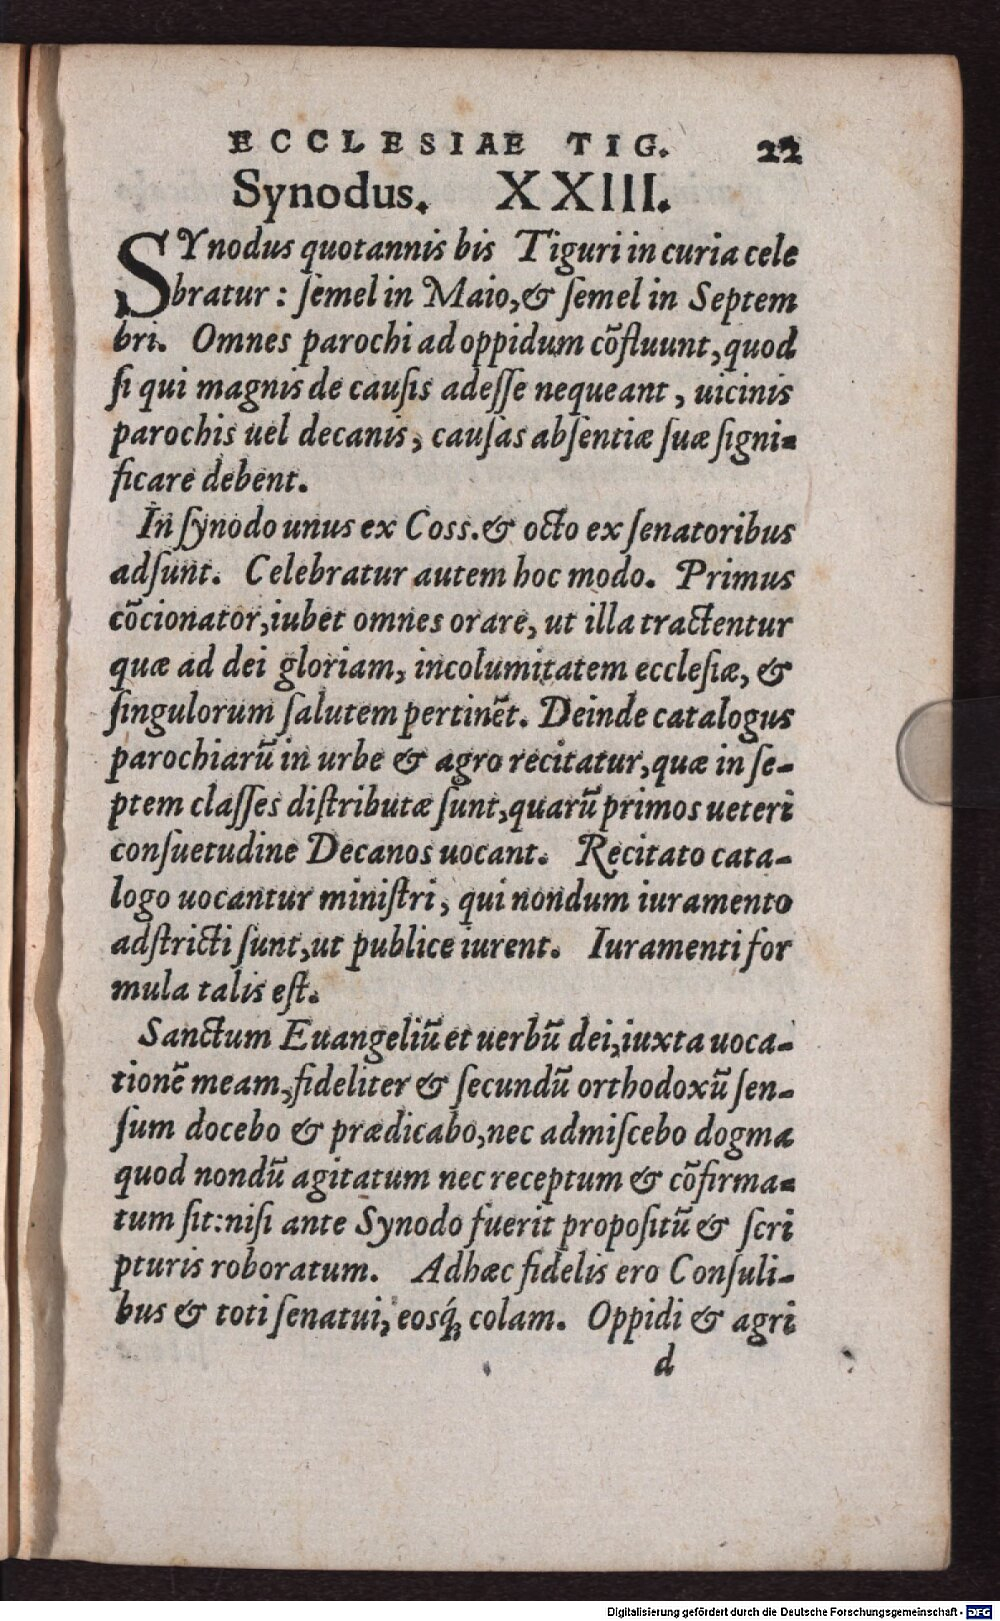 ECCLESIAE TIG. 22
Synodus. XXIII.
SYnodus quotannis bis Tiguri in curia cele
bratur: semel in Maio, & semel in Septem
bri. Omnes parochi ad oppidum cõfluunt, quod
si qui magnis de causis adesse nequeant, uicinis
parochis uel decanis, causas absentiæ suæ signi-
ficare debent.
In synodo unus ex Coss. & octo ex senatoribus
adsunt. Celebratur autem hoc modo. Primus
cõcionator, iubet omnes orare, ut illa tractentur
quæ ad dei gloriam, incolumitatem ecclesiæ, &
singulorum salutem pertinẽt. Deinde catalogus
parochiarũ in urbe & agro recitatur, quæ in se-
ptem classes distributæ sunt, quarũ primos ueteri
consuetudine Decanos uocant. Recitato cata-
logo uocantur ministri, qui nondum iuramento
adstricti sunt, ut publice iurent. Iuramenti for
mula talis est.
Sanctum Euangeliũ et uerbũ dei, iuxta uoca-
tionẽ meam, fideliter & secundũ orthodoxũ sen-
sum docebo & prædicabo, nec admiscebo dogma
quod nondũ agitatum nec receptum & cõfirma-
tum sit: nisi ante Synodo fuerit propositũ & scri
pturis roboratum. Adhæc fidelis ero Consuli-
bus & toti senatui, eosq́; colam. Oppidi & agri
d
Digitalisierung gefördert durch die Deutsche Forschungsgemeinschaft - DFG